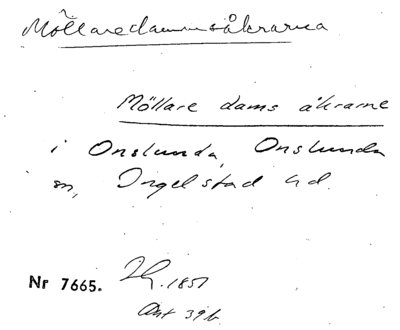 Möllaredammsåkrarna
Möllare dams åkrarne
i Onslunda, Onslunda
sn, Ingelstad hd.
Nr 7665. 1851
Akt 39b